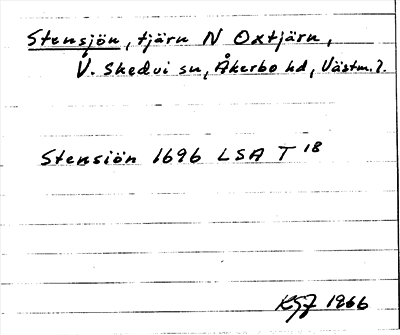 Stensjön, tjärn N Oxtjärn,
V. Skedvi sn, Åkerbo hd, Västm. l.
Stensiön 1696 LSA T 18
KGJ 1966